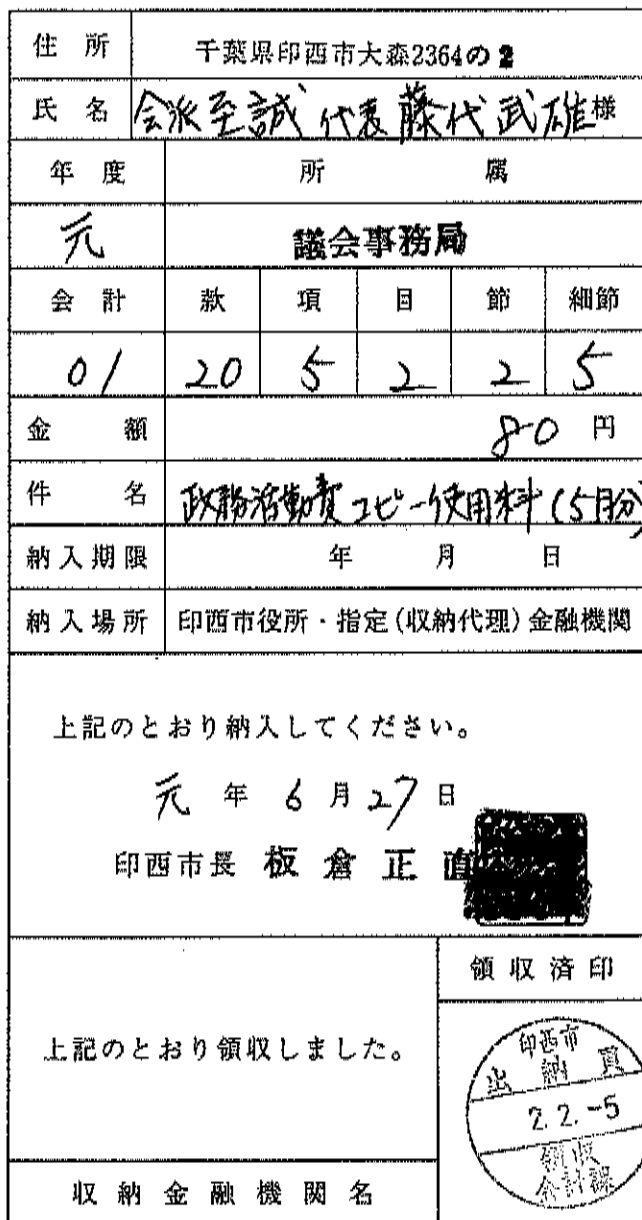 住所 千葉県印西市大森2364の2
氏名 会派至誠 代表 藤代武雄 様
年度 所属
元 議会事務局
会計 款 項 目 節 細節
01 20 5 2 2 5
金額 80 円
件名 政務活動費コピー使用料(5月分)
納入期限 年 月 日
納入場所 印西市役所・指定(収納代理)金融機関
上記のとおり納入してください。
元 年 6 月 27 日
印西市長 板倉正直
領収済印
上記のとおり領収しました。
印西市
出納員
2.2.-5
領収
会計課
収納金融機関名